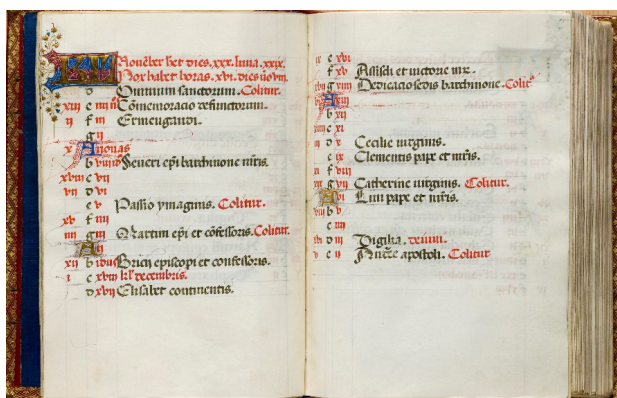 KL Nouẽber het dies. xxx. luna. xxix.
Nox habet horas. xvi. dies
d Omnium sanctorum. Colitur.
xiii e iiii Cõmemoracio defunctorum.
ii f iii Ermengaudi.
g ii
x A Nonas
b viii Seueri epi barchinone mris.
xviii c vii
vii d vi
e v Passio ymaginis. Colitur.
xv f iiii
iiii g iii Martini epi et cõfessoris. Colitur.
A ii
xii b idus Bricii episcopi et confessoris.
i c xviii kl' decembris.
d xvii Elisabet continentis.
e xvi
f xv Assiscli et victorie mr.
g xiiii Dedicacio sedis barchinone. Colitr
A xiii
b xii
c xi
d x Cecilie uirginis.
e ix Clementis pape et mris.
f viii
g vii Catherine uirginis. Colitur.
A vi Lini pape et mris.
b v
c iiii
d iii Vigilia.
e ii Andree apostoli. Colitur